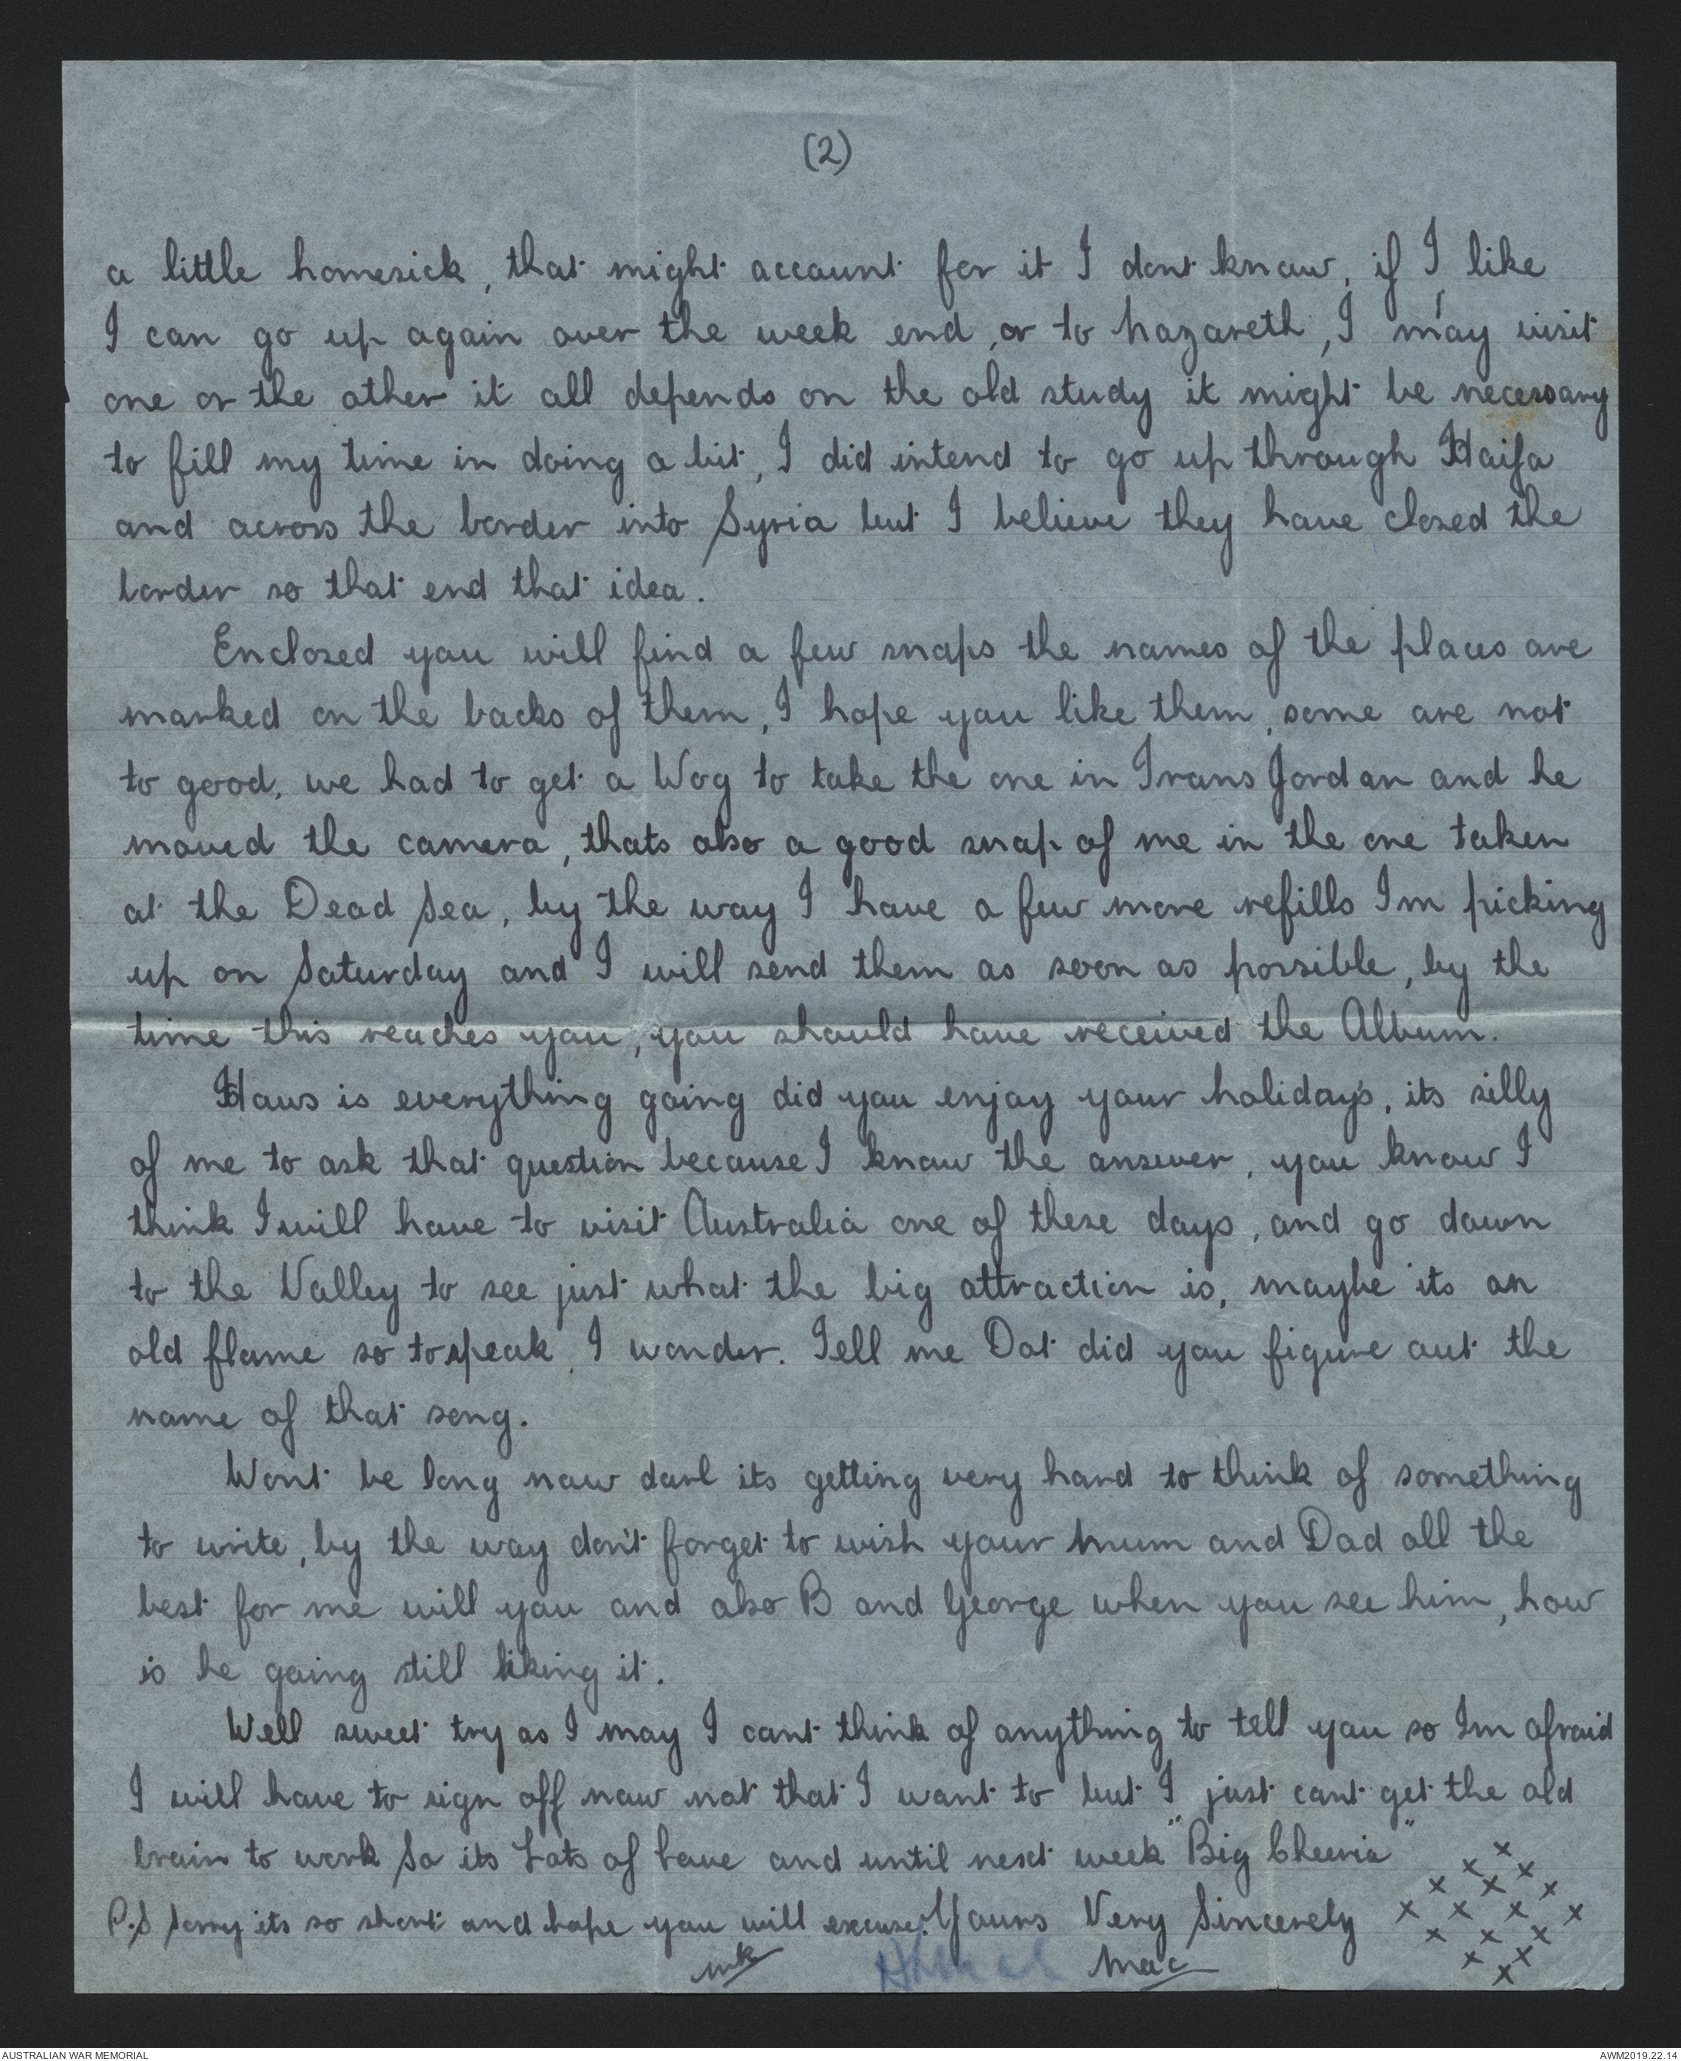 (2)
a little homesick, that might account for it I dont know, if I like
I can go up again over the week end, or to Nazareth, I may visit
one or the other it all depends on the old study it might be necessary
to fill my time in doing a bit, I did intend to go up through Haifa
and across the border into Syria but I believe they have closed the
border so that end that idea.
Enclosed you will find a few snaps the names of the places are
marked on the backs of them, I hope you like them, some are not
to good, we had to get a Wog to take the one in Trans Jordan and he
moved the camera, thats also a good snap of me in the one taken
at the Dead Sea, by the way I have a few more refills Im picking
up on Saturday and I will send them as soon as possible, by the
time this reaches you, you should have received the Album.
Hows is everything going did you enjoy your holidays, its silly
of me to ask that question because I know the answer, you know I
think I will have to visit Australia one of these days, and go down
to the Valley to see just what the big attraction is, maybe its an
old flame so to speak, I wonder. Tell me Dot did you figure out the
name of that song.
Wont be long now darl its getting very hard to think of something
to write, by the way don't forget to wish your Mum and Dad all the
best for me will you and also B and George when you see him, how
is he going still liking it.
Well sweet try as I may I cant think of anything to tell you so Im afraid
I will have to sign off now not that I want to but I just cant get the old
brain to work So its Lots of Love and until next week "Big Cheerio"
P.S Sorry its so short and hope you will excuse. Yours Very Sincerely
Mac
x x x x x x x x x x x x x x x x
AUSTRALIAN WAR MEMORIAL
AWM2019.22.14